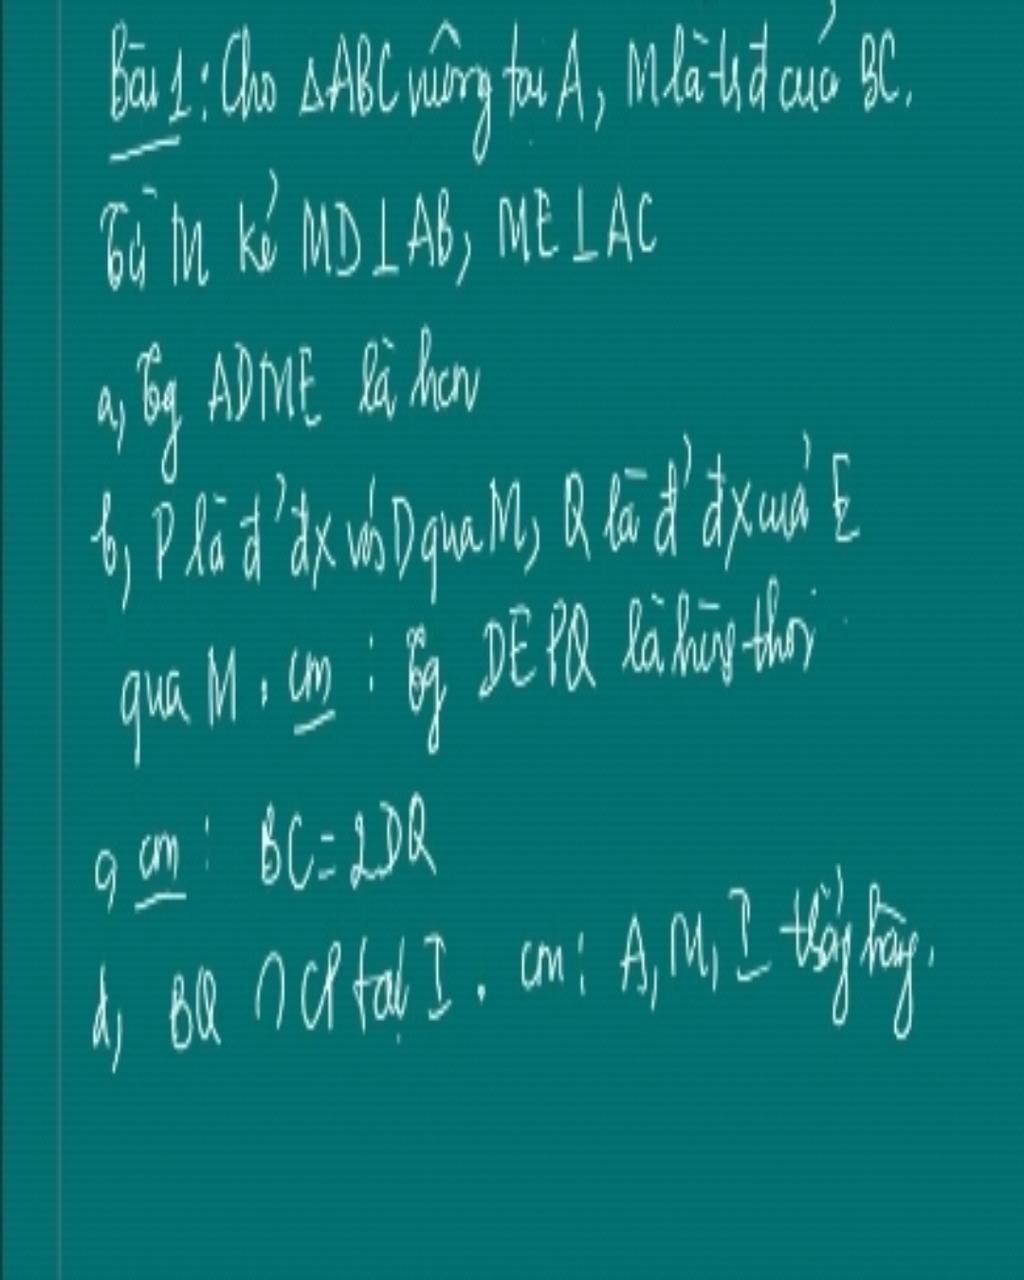 Bài 1: Cho △ABC vuông tại A, M là tđ của BC.
Từ M kẻ MD⊥AB, ME⊥AC
a, Tg ADME là hcn
b, P là đ' đx với D qua M, Q là đ' đx của E
qua M. cm: Tg DEPQ là hình thoi
c, cm: BC=2DQ
d, BQ ∩ CP tại I. cm: A, M, I thẳng hàng.